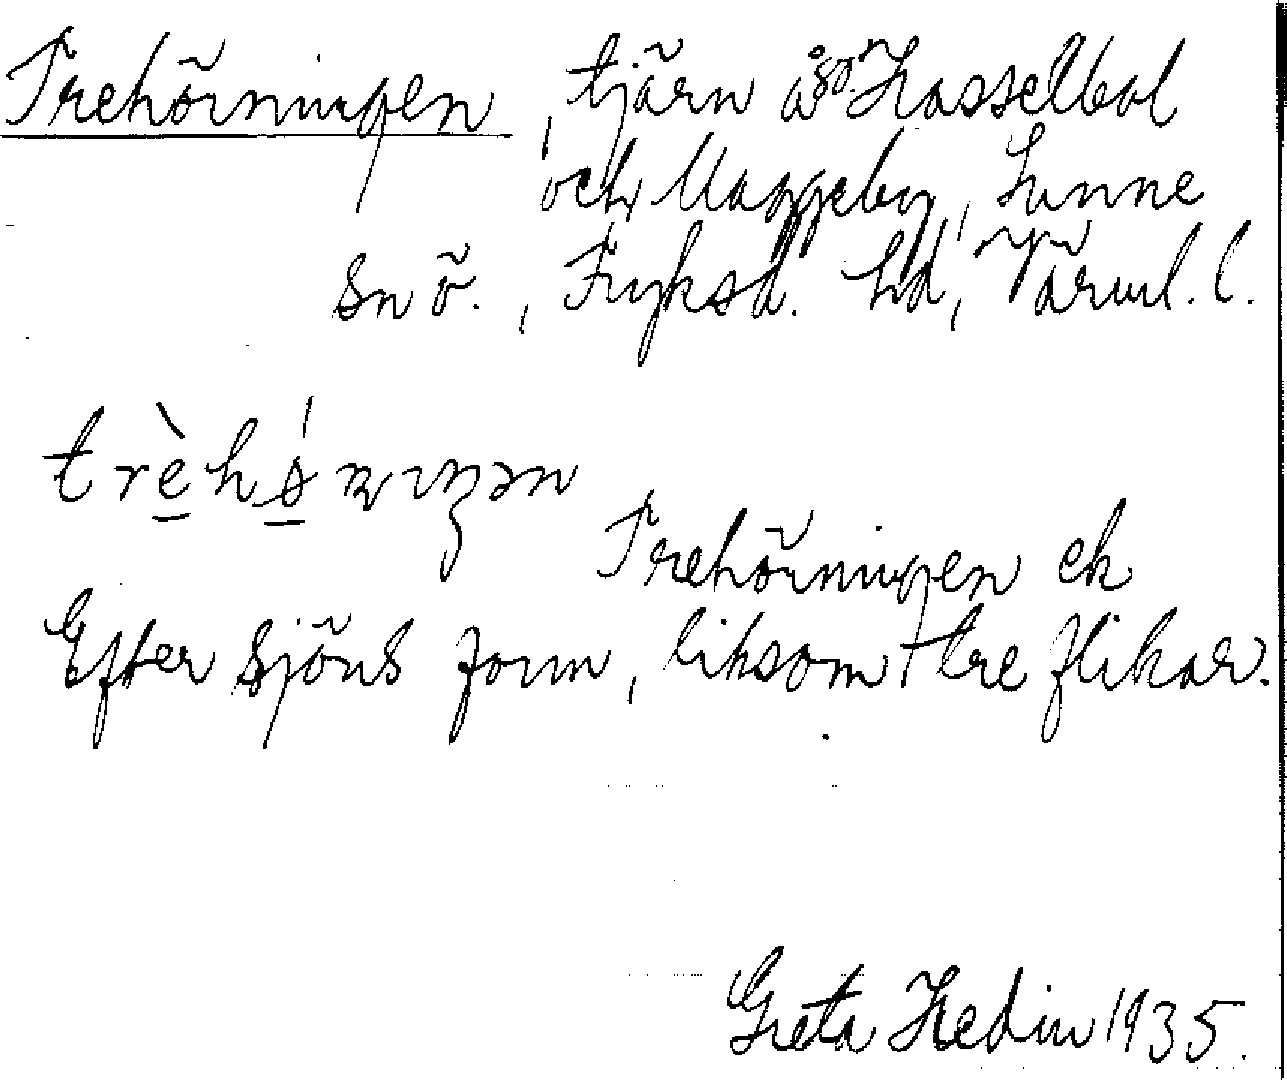 Trehörningen, tjärn å so. Hasselbol
och Uaggeby, Sunne
sn ö., Fryksd. hd, Värml. l.
trèhǿɳıŋən
Trehörningen ek
Efter sjöns form, liksom tre flikar.
Greta Hedin 1935.